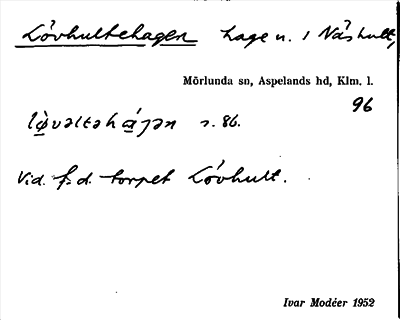 Lövhultehagen hage u. 1 Näshult,
Mörlunda sn, Aspelands hd, Klm. l.
96
s. 86.
Vid f.d. torpet Lövhult.
Ivar Modéer 1952